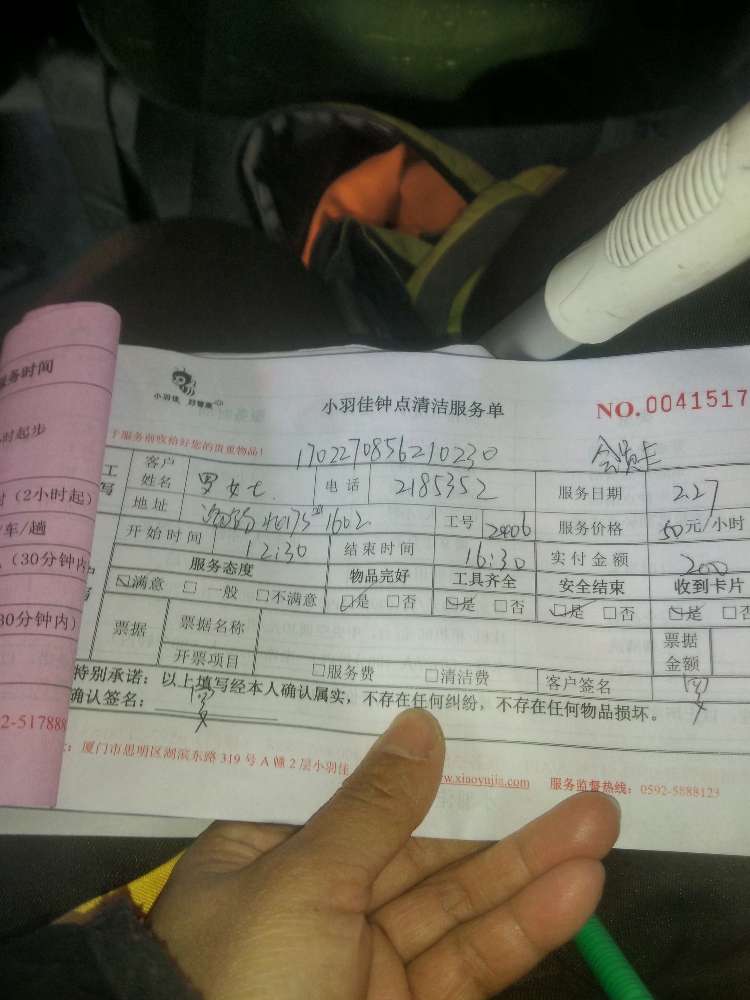 务时间
时起步
(2小时起)
车/趟
(30分钟内
30分钟内)
2-517880
小羽佳
小羽佳钟点清洁服务单
NO.0041517
于服务前收拾好您的贵重物品!
1702270856210230
会员卡
工
写
客户
姓名
电话
2185352
服务日期
2.27
地址
1602
工号
2406
服务价格
50元/小时
开始时间
12:30
结束时间
16:30
实付金额
200
服务态度
物品完好
工具齐全
安全结束
收到卡片
☑满意 □一般 □不满意
☑是 □否
☑是 □否
☑是 □否
☑是 □否
票据
票据名称
票据
金额
开票项目
□服务费 □清洁费
客户签名
特别承诺:以上填写经本人确认属实,不存在任何纠纷,不存在任何物品损坏。
确认签名:
:厦门市思明区湖滨东路319号A幢2层小羽佳
www.xiaoyujia.com
服务监督热线:0592-5888123